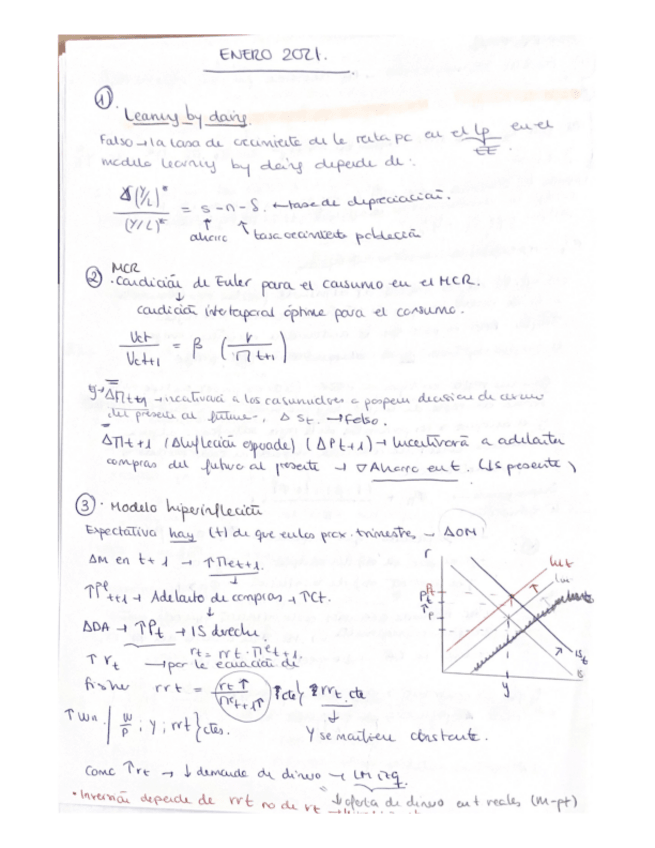 ENERO 2021.
①. Learning by doing.
Falso → la tasa de crecimiento de la renta pc en el lp en el
EE.
modelo learning by doing depende de:
Δ(Y/L)* / (Y/L)* = s - n - δ. ← tasa de depreciación.
ahorro tasa crecimiento población
② MCR
· Condición de Euler para el consumo en el MCR.
condición intertemporal óptima para el consumo.
Uct / Uct+1 = β ( r / Πt+1 )
ΔΠt+1 → incentivará a los consumidores a posponer decisión de
del presente al futuro, Δ St. → Falso.
ΔΠt+1 (Δ Inflación esperada) (ΔPt+1) → Incentivará a adelantar
compras del futuro al presente → ∇ Ahorro en t. (↓S presente)
③ · Modelo hiperinflación
Expectativa hoy (t) de que en los prox. trimestres → ΔOM
ΔM en t+1 → ↑Πet+1.
↑Pet+1 → Adelanto de compras, ↑Ct.
ΔDA → ↑Pt → IS derecha.
rt = rrt · Πet+1.
↑ rt → por la ecuación de
fisher rrt = rt ↑ / Πet+1↑ rrt cte
↑Wn · | W/P ; Y ; rrt } ctes.
Y se mantiene constante.
Como ↑rt → ↓ demanda de dinero → LM izq.
· Inversión depende de rrt no de rt → ↓ oferta de dinero en t reales (M-pt)
r
LMt
LM
Pt
↑
P
ISt
IS
Y